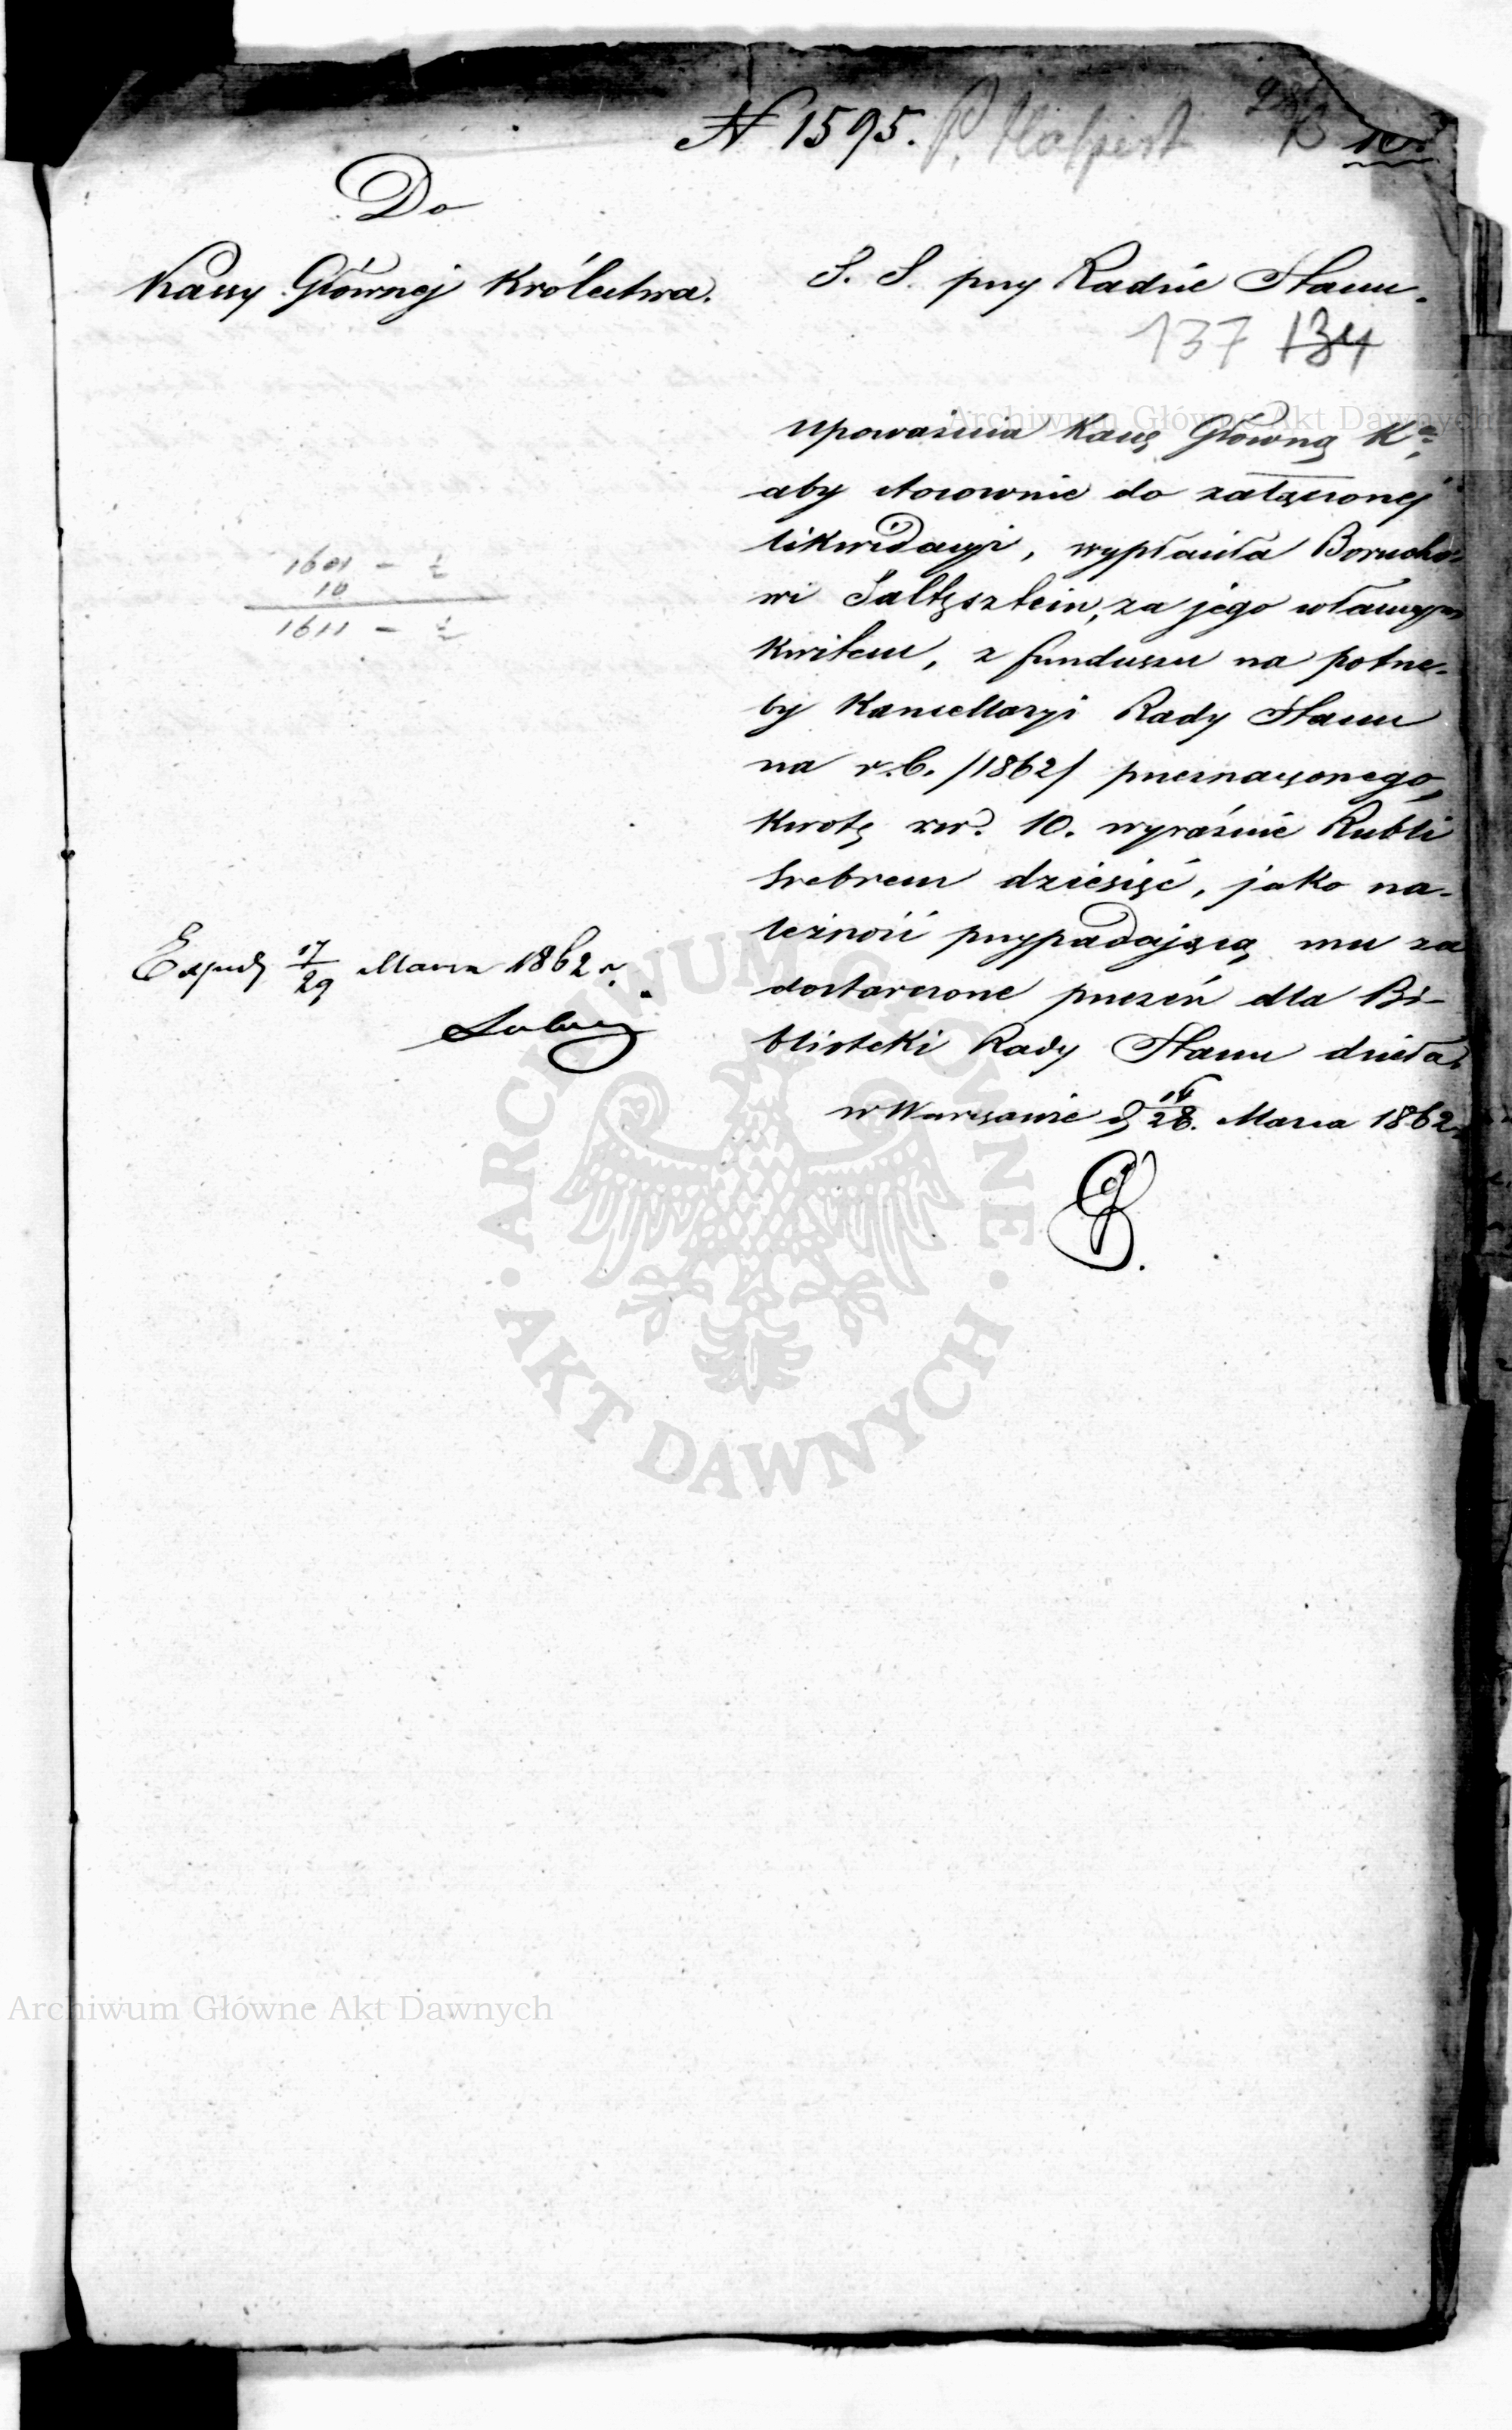 N 1595. P. Halpert
Do
Kassy Głównej Królestwa.
S. S. przy Radzie Stanu.
137 134
upoważnia Kassę Główną Kª,
aby stosownie do załączonej
likwidacyi, wypłaciła Borucho-
wi Saltzsztein, za jego własnym
kwitem, z funduszu na potrze-
by Kancellaryi Rady Stanu
na r.b. /1862/ przeznaczonego,
kwotę rsr. 10. wyraźnie Rubli
srebrem dziesięć, jako na-
leżność przypadającą mu za
dostarczone przezeń dla Bi-
blioteki Rady Stanu dzieła.
w Warszawie d. 16/28. Marca 1862
1601 - ½
10
1611 - ½
Expedj 17/29 Marca 1862 r.
Archiwum Główne Akt Dawnych
ARCHIWUM GŁÓWNE · AKT DAWNYCH ·
Archiwum Główne Akt Dawnych